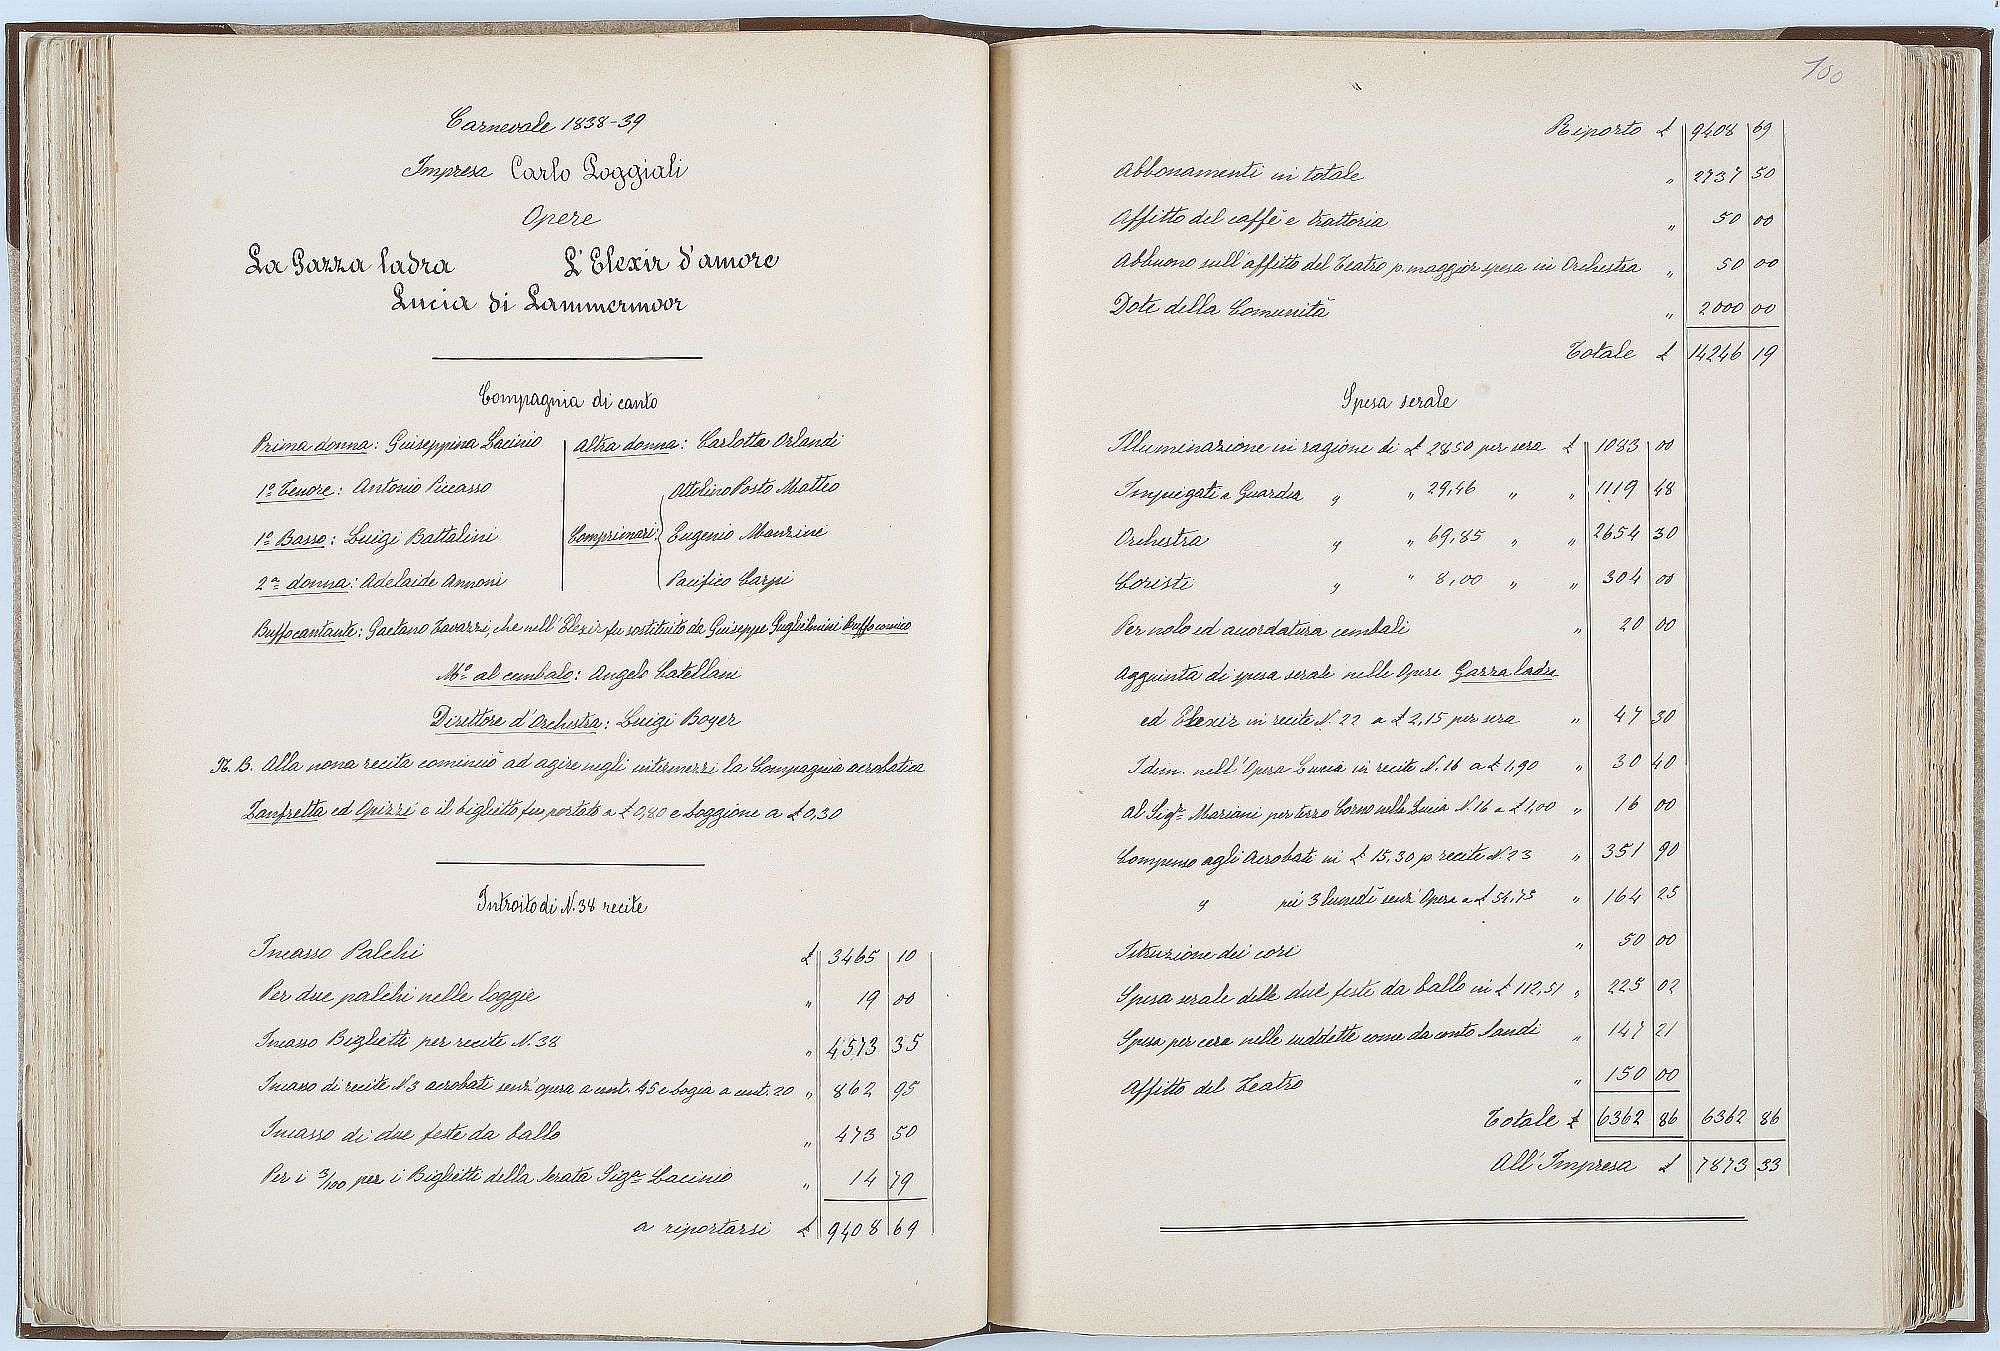 Carnevale 1838-39
Impresa Carlo Poggiali
Opere
La Gazza ladra L'Elexir d'amore
Lucia di Lammermoor
Compagnia di canto
Prima donna: Giuseppina Lacinio
1º Tenore: Antonio Picasso
1º Basso: Luigi Battalini
2ª donna: Adelaide Annoni
Altra donna: Carlotta Orlandi
Comprimari: Ottolino Posto Matteo
Eugenio Manzini
Pacifico Carpi
Buffo cantante: Gaetano Zavazzi, che nell'Elexir fu sostituito da Giuseppe Guglielmini Buffo comico
Mº al cembalo: Angelo Catellani
Direttore d'Orchestra: Luigi Boyer
N.B. Alla nona recita cominciò ad agire negli intermezzi la Compagnia acrobatica
Zanfretta ed Opizzi e il biglietto fu portato a £ 0,80 e Loggione a £ 0,30
Introito di N. 38 recite
Incasso Palchi £ 3465 10
Per due palchi nelle loggie " 19 00
Incasso Biglietti per recite N. 38 " 4573 35
Incasso di recite N 3 acrobati senz'opera a cent. 45 e Logia a cent. 20 " 862 95
Incasso di due feste da ballo " 473 50
Per i 3/100 per i Biglietti della serata Sigª Lacinio " 14 79
a riportarsi £ 9408 69
100
Riporto £ 9408 69
Abbonamenti in totale " 2737 50
Affitto del caffè e trattoria " 50 00
Abbuono sull'affitto del Teatro p. maggior spesa in Orchestra " 50 00
Dote della Comunità " 2000 00
Totale £ 14246 19
Spesa serale
Illuminazione in ragione di £ 28 50 per sera £ 1083 00
Impiegati e Guardia " " 29,46 " " 1119 48
Orchestra " " 69,85 " " 2654 30
Coristi " " 8,00 " " 304 00
Per nolo ed accordatura cembali " 20 00
Aggiunta di spesa serale nelle Opere Gazza ladra
ed Elexir in recite N. 22 a £ 2,15 per sera " 47 30
Idem. nell'Opera Lucia in recite N. 16 a £ 1,90 " 30 40
Al Sigr Mariani per terzo Corno nella Lucia N. 16 a £ 1,00 " 16 00
Compenso agli Acrobati in £ 15,30 p. recite N. 23 " 351 90
" pei 3 lunedì senz'Opera a £ 54,75 " 164 25
Istruzione dei cori " 50 00
Spesa serale delle due feste da ballo in £ 112,51 " 225 02
Spesa per cera nelle suddette come da conto Sandi " 147 21
Affitto del Teatro " 150 00
Totale £ 6362 86 6362 86
All'Impresa £ 7873 33